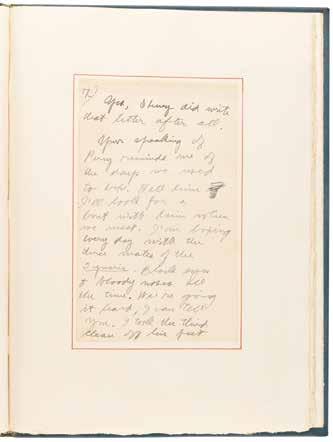 7) Yes, I have did write
that letter after all.
Your speaking of
Perry reminds me of
the days we used
to box. Tell him
I'll look for a
bout with him when
we meet. I'm boxing
every day with the
three mates of the
Tymeric. Black eyes
& bloody noses all
the time. We're going
it hard, I can tell
you. I took the third
clean off his feet